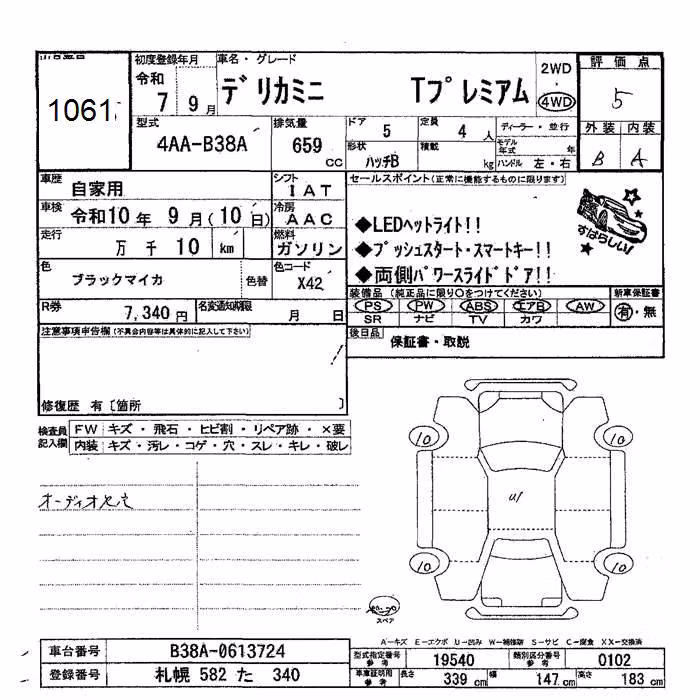 初度登録年月 車名・グレード 評価点
1061 令和 7 9月 デリカミニ Tプレミアム 2WD 4WD 5
型式 4AA-B38A 排気量 659 cc ドア 5 定員 4 人 ディーラー・並行 外装 内装
形状 ハッチB 積載 kg モデル年式 年 ハンドル 左・右 B A
車歴 自家用 シフト IAT セールスポイント(正常に機能するものに限ります)
車検 令和10年 9月(10日) 冷房 AAC ◆LEDヘットライト!! すばらしい!
走行 万 千 10 km 燃料 ガソリン ◆プッシュスタート・スマートキー!!
色 ブラックマイカ 色替 色コード X42 ◆両側パワースライドドア!!
R券 7,340円 名変通知期限 月 日 装備品(純正品に限り○をつけてください) 新車保証書
PS PW ABS エアB AW 有・無
SR ナビ TV カワ
注意事項申告欄(不具合内容等は具体的に記入して下さい) 後日品 保証書・取説
修復歴 有〔箇所 〕
検査員記入欄 FW キズ・飛石・ヒビ割・リペア跡・×要
内装 キズ・汚レ・コゲ・穴・スレ・キレ・破レ
10 10
U1
10 10
スペア
A-キズ E-エクボ U-凹み W-補修跡 S-サビ C-腐食 XX-交換済
車台番号 B38A-0613724 型式指定番号 参考 19540 類別区分番号 参考 0102
登録番号 札幌 582 た 340 車庫証明用 参考 長さ 339 cm 幅 147 cm 高さ 183 cm